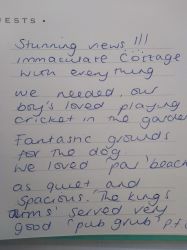 ESTS •
Stunning views !!!
immaculate Cottage
with everything
we needed, our
boy's loved playing
cricket in the garden
Fantastic grounds
for the dog.
We loved 'par' beach
as quiet and
spacious. The kings
arms' served very
good 'pub grub' p.t.o